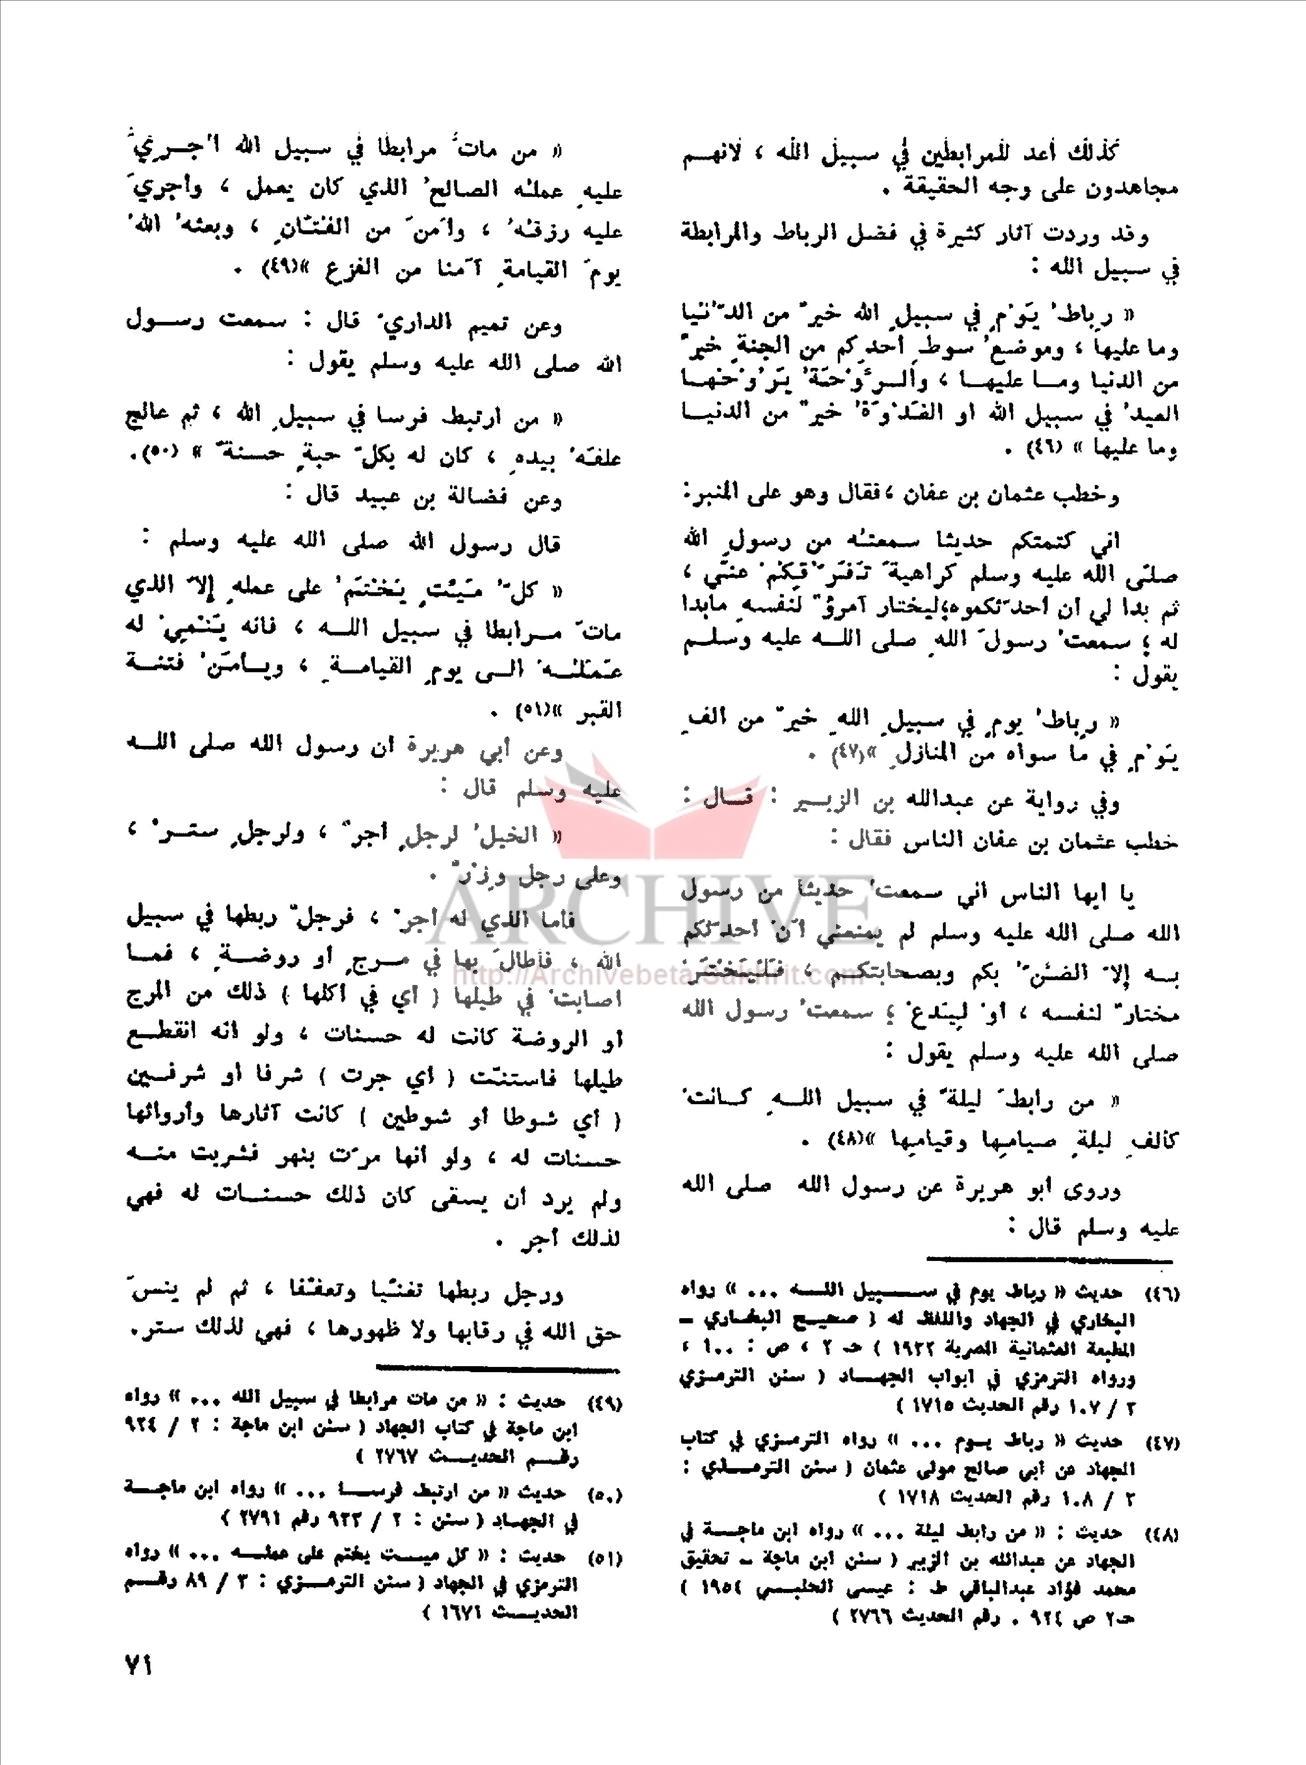 كذلك أعد للمرابطين في سبيل الله ، لانهم
مجاهدون على وجه الحقيقة .
وقد وردت آثار كثيرة في فضل الرباط والمرابطة
في سبيل الله :
« رباط يَوْمٍ في سبيلِ الله خيرٌ من الدّنيا
وما عليها ، وموضعُ سوطِ أحدِكم من الجنةِ خيرٌ
من الدنيا وما عليها ، والرَّوْحَةُ يَرُوحُها
العبدُ في سبيل الله أو الغَدْوَةُ خيرٌ من الدنيا
وما عليها » (٤٦) .
وخطب عثمان بن عفان ، فقال وهو على المنبر:
اني كتمتكم حديثا سمعتُه من رسولِ الله
صلّى الله عليه وسلم كراهيةَ تَفَرُّقِكُمْ عنّي ،
ثم بدا لي أن أحدّثكموه؛ليختار آمرؤٌ لنفسه مابدا
له ؛ سمعتُ رسولَ اللهِ صلى الله عليه وسلم
يقول :
« رباطُ يومٍ في سبيلِ اللهِ خيرٌ من ألفِ
يَوْمٍ في ما سواه من المنازلِ »(٤٧) .
وفي رواية عن عبدالله بن الزبير : قال :
خطب عثمان بن عفان الناس فقال :
يا أيها الناس اني سمعتُ حديثا من رسول
الله صلى الله عليه وسلم لم يمنعني أنْ أحدّثكم
به إلاّ الضنُّ بكم وبصحابتكم ، فَلْيَخْتَرْ
مختارٌ لنفسه ، أوْ لِيَدعْ ؛ سمعتُ رسول الله
صلى الله عليه وسلم يقول :
« من رابطَ ليلةً في سبيل اللهِ كانتْ
كألفِ ليلةٍ صيامِها وقيامِها »(٤٨) .
وروى أبو هريرة عن رسول الله صلى الله
عليه وسلم قال :
(٤٦) حديث « رباط يوم في سبيل الله ... » رواه
البخاري في الجهاد واللفظ له ( صحيح البخاري ـ
المطبعة العثمانية المصرية ١٩٣٢ ) حـ ٢ ، ص : ١٠٠ ،
ورواه الترمزي في أبواب الجهاد ( سنن الترمزي
٣ / ١٠٧ رقم الحديث ١٧١٥ )
(٤٧) حديث « رباط يوم ... » رواه الترمزي في كتاب
الجهاد عن أبي صالح مولى عثمان ( سنن الترمذي :
٣ / ١٠٨ رقم الحديث ١٧١٨ )
(٤٨) حديث : « من رابط ليلة ... » رواه ابن ماجة في
الجهاد عن عبدالله بن الزبير ( سنن ابن ماجة ـ تحقيق
محمد فؤاد عبدالباقي ط : عيسى الحلبي ١٩٥٤ )
حـ٢ ص ٩٢٤ . رقم الحديث ٢٧٦٦ )
« من مات مرابطا في سبيل الله أجري
عليه عملُه الصالحُ الذي كان يعمل ، وأجريَ
عليه رزقُه ، وأَمِنَ من الفتّانِ ، وبعثه اللهُ
يومَ القيامةِ آمنا من الفزع »(٤٩) .
وعن تميم الداريّ قال : سمعت رسول
الله صلى الله عليه وسلم يقول :
« من ارتبط فرسا في سبيلِ الله ، ثم عالج
علفَه بيدهِ ، كان له بكلّ حبةٍ حسنةٌ » (٥٠).
وعن فضالة بن عبيد قال :
قال رسول الله صلى الله عليه وسلم :
« كلُّ مَيِّتٍ يُخْتَمُ على عملهِ إلاّ الذي
ماتَ مرابطا في سبيل الله ، فانه يَنْمِي له
عَمَلُهُ الى يومِ القيامةِ ، ويأمَنُ فتنة
القبر »(٥١) .
وعن أبي هريرة أن رسول الله صلى الله
عليه وسلم قال :
« الخيلُ لرجلٍ أجرٌ ، ولرجلٍ سترٌ ،
وعلى رجل وِزْرٌ .
فأما الذي له أجرٌ ، فرجلٌ ربطها في سبيل
الله ، فأطالَ بها في مرجٍ أو روضةٍ ، فما
أصابتْ في طيلها ( أي في أكلها ) ذلك من المرج
أو الروضة كانت له حسنات ، ولو أنه انقطع
طيلها فاستنّت ( أي جرت ) شرفا أو شرفين
( أي شوطا أو شوطين ) كانت آثارها وأروائها
حسنات له ، ولو أنها مرّت بنهر فشربت منه
ولم يرد أن يسقى كان ذلك حسنات له فهي
لذلك أجر .
ورجل ربطها تغنّيا وتعفّفا ، ثم لم ينسَ
حق الله في رقابها ولا ظهورها ، فهي لذلك ستر.
(٤٩) حديث : « من مات مرابطا في سبيل الله ... » رواه
ابن ماجة في كتاب الجهاد ( سنن ابن ماجة : ٢ / ٩٢٤
رقم الحديث ٢٧٦٧ )
(٥٠) حديث « من ارتبط فرسا ... » رواه ابن ماجة
في الجهاد ( سنن : ٢ / ٩٣٣ رقم ٢٧٩١ )
(٥١) حديث : « كل ميت يختم على عمله ... » رواه
الترمزي في الجهاد ( سنن الترمزي : ٣ / ٨٩ رقم
الحديث ١٦٧١ )
٧١
ARCHIVE
http://Archivebeta.Sakhrit.com